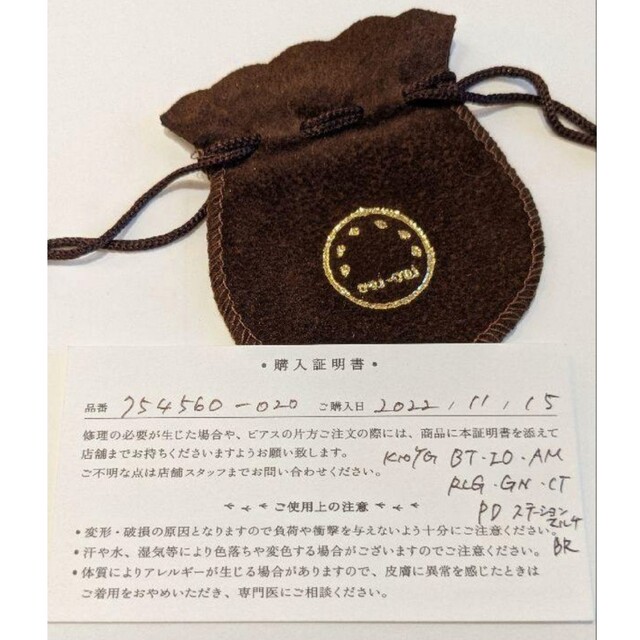 ・購入証明書・
品番 754560-020 ご購入日 2022, 11, 15
修理の必要が生じた場合や、ピアスの片方ご注文の際には、商品に本証明書を添えて
店舗までお持ちくださいますようお願い致します。
ご不明な点は店舗スタッフまでお問い合わせください。
K10YG BT・IO・AM
RLG・GN・CT
PD ステーション
マルチ
BR
ご使用上の注意
・変形・破損の原因となりますので負荷や衝撃を与えないよう十分にご注意ください。
・汗や水、湿気等により色落ちや変色する場合がございますのでご注意ください。
・体質によりアレルギーが生じる場合がありますので、皮膚に異常を感じたときは
ご着用をおやめいただき、専門医にご相談ください。